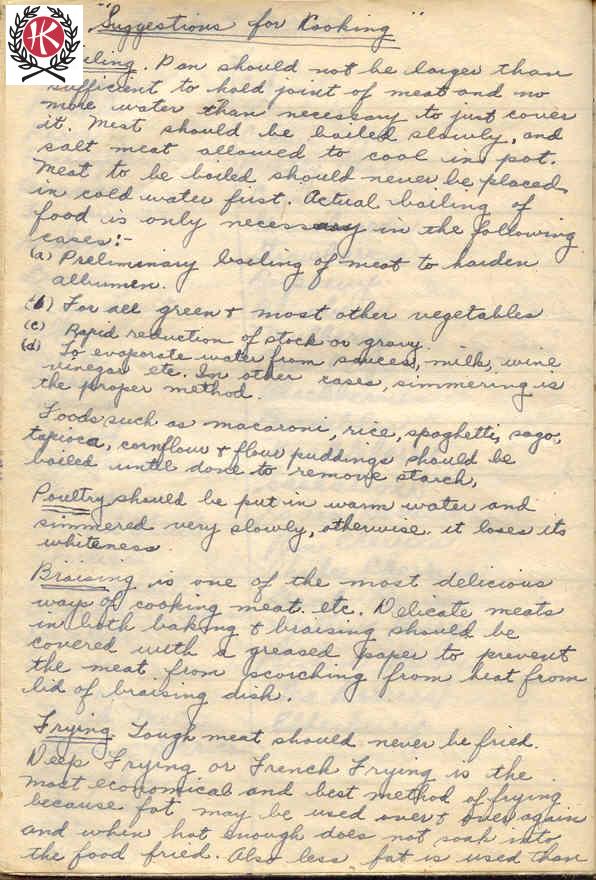 "Suggestions for Cooking"
HK
iling. Pan should not be larger than
sufficient to hold joint of meat and no
more water than necessary to just cover
it. Meat should be boiled slowly, and
salt meat allowed to cool in pot.
Meat to be boiled should never be placed
in cold water first. Actual boiling of
food is only necessary in the following
cases:-
(a) Preliminary boiling of meat to harden
albumen.
(b) For all green + most other vegetables
(c) Rapid reduction of stock or gravy.
(d) To evaporate water from sauces, milk, wine
vinegar etc. In other cases, simmering is
the proper method.
Foods such as macaroni, rice, spaghetti, sago,
tapioca, cornflour + flour puddings should be
boiled until done to remove starch.
Poultry should be put in warm water and
simmered very slowly, otherwise it loses its
whiteness
Braising is one of the most delicious
ways of cooking meat etc. Delicate meats
in both baking + braising should be
covered with a greased paper to prevent
the meat from scorching from heat from
lid of braising dish.
Frying. Tough meat should never be fried.
Deep Frying or French Frying is the
most economical and best method of frying
because fat may be used over + over again
and when hot enough does not soak into
the food fried. Also less fat is used than